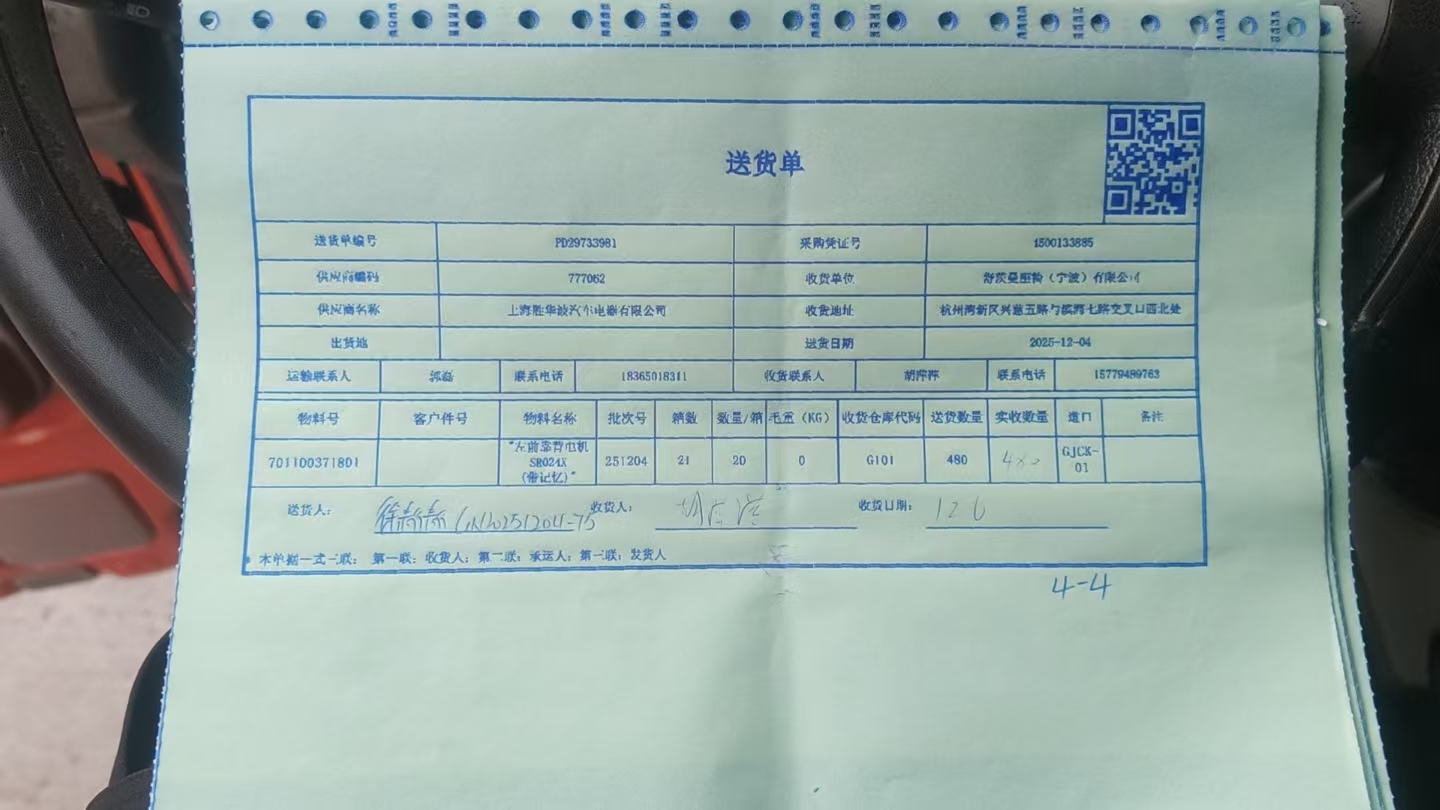 送货单
送货单编号 PD29733981 采购凭证号 1500133885
供应商编码 777062 收货单位 舒茨曼座椅（宁波）有限公司
供应商名称 上海胜华波汽车电器有限公司 收货地址 杭州湾新区兴慈五路与滨湾七路交叉口西北处
出货地 送货日期 2025-12-04
运输联系人 郭磊 联系电话 18365018311 收货联系人 胡萍萍 联系电话 15779489763
物料号 客户件号 物料名称 批次号 箱数 数量/箱 毛重（KG） 收货仓库代码 送货数量 实收数量 道口 备注
701100371801 "左前靠背电机 SR024X （带记忆）" 251204 21 20 0 G101 480 GJCK-01
送货人： 收货人： 收货日期： 126
本单据一式三联： 第一联：收货人；第二联：承运人；第三联：发货人
4-4